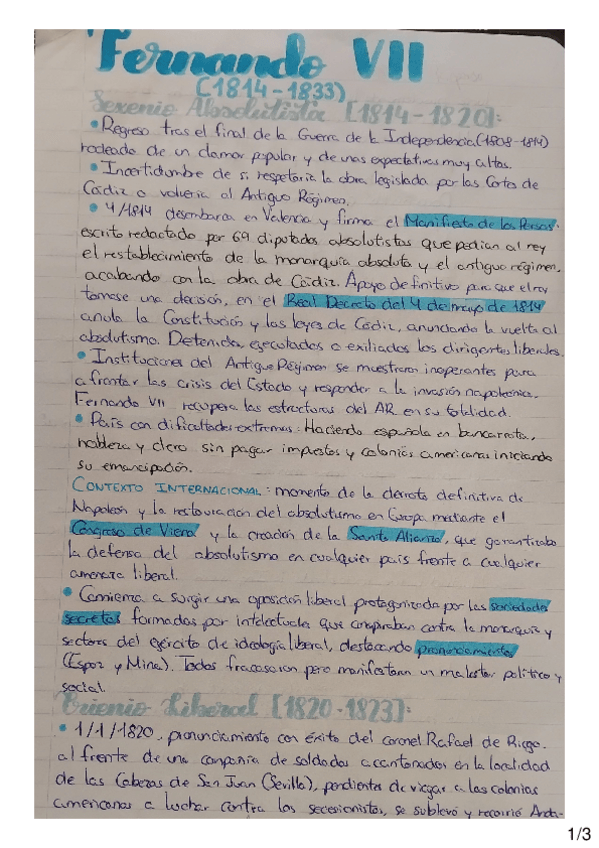 Fernando VII
(1814-1833)
Sexenio Absolutista [1814-1820]:
• Regreso tras el final de la Guerra de la Independencia (1808-1814)
rodeado de un clamor popular y de unas expectativas muy altas.
• Incertidumbre de si respetaría la obra legislada por las Cortes de
Cádiz o volvería al Antiguo Régimen.
• 4/1814 desembarca en Valencia y firma el Manifiesto de los Persas:
escrito redactado por 69 diputados absolutistas que pedían al rey
el restablecimiento de la monarquía absoluta y el antiguo régimen,
acabando con la obra de Cádiz. Apoyo definitivo para que el rey
tomase una decisión, en el Real Decreto del 4 de mayo de 1814
anula la Constitución y las leyes de Cádiz, anunciando la vuelta al
absolutismo. Detenidos, ejecutados o exiliados los dirigentes liberales.
• Instituciones del Antiguo Régimen se muestran inoperantes para
afrontar las crisis del Estado y responder a la invasión napoleónica.
Fernando VII recupera las estructuras del AR en su totalidad.
• País con dificultades extremas: Hacienda española en bancarrota,
nobleza y clero sin pagar impuestos y colonias americanas iniciando
su emancipación.
CONTEXTO INTERNACIONAL: momento de la derrota definitiva de
Napoleón y la restauración del absolutismo en Europa mediante el
Congreso de Viena y la creación de la Santa Alianza, que garantizaba
la defensa del absolutismo en cualquier país frente a cualquier
amenaza liberal.
• Comienza a surgir una oposición liberal protagonizada por las sociedades
secretas formadas por intelectuales que conspiraban contra la monarquía y
sectores del ejército de ideología liberal, destacando pronunciamientos
(Espoz y Mina). Todos fracasaron pero manifestaron un malestar político y
social.
Trienio Liberal [1820-1823]:
• 1/1/1820, pronunciamiento con éxito del coronel Rafael de Riego,
al frente de una compañía de soldados acantonados en la localidad
de las Cabezas de San Juan (Sevilla), pendientes de viajar a las colonias
americanas a luchar contra los secesionistas, se sublevó y recorrió Anda-
1/3